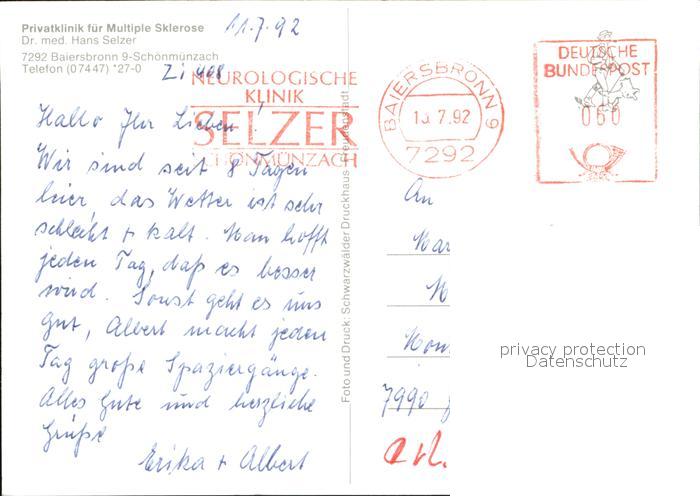 Privatklinik für Multiple Sklerose
Dr. med. Hans Selzer
7292 Baiersbronn 9-Schönmünzach
Telefon (07447) *27-0
11.7.92
Zi 408
NEUROLOGISCHE
KLINIK
SELZER
SCHÖNMÜNZACH
BAIERSBRONN 9
13.7.92
7292
DEUTSCHE
BUNDESPOST
060
Hallo Ihr Lieben!
Wir sind seit 8 Tagen
hier, das Wetter ist sehr
schlecht + kalt. Man hofft
jeden Tag, daß es besser
wird. Sonst geht es uns
gut, Albert macht jeden
Tag große Spaziergänge.
Alles Gute und herzliche
Grüße
Erika + Albert
Foto und Druck: Schwarzwälder Druckhaus Freudenstadt
An
7990
privacy protection
Datenschutz